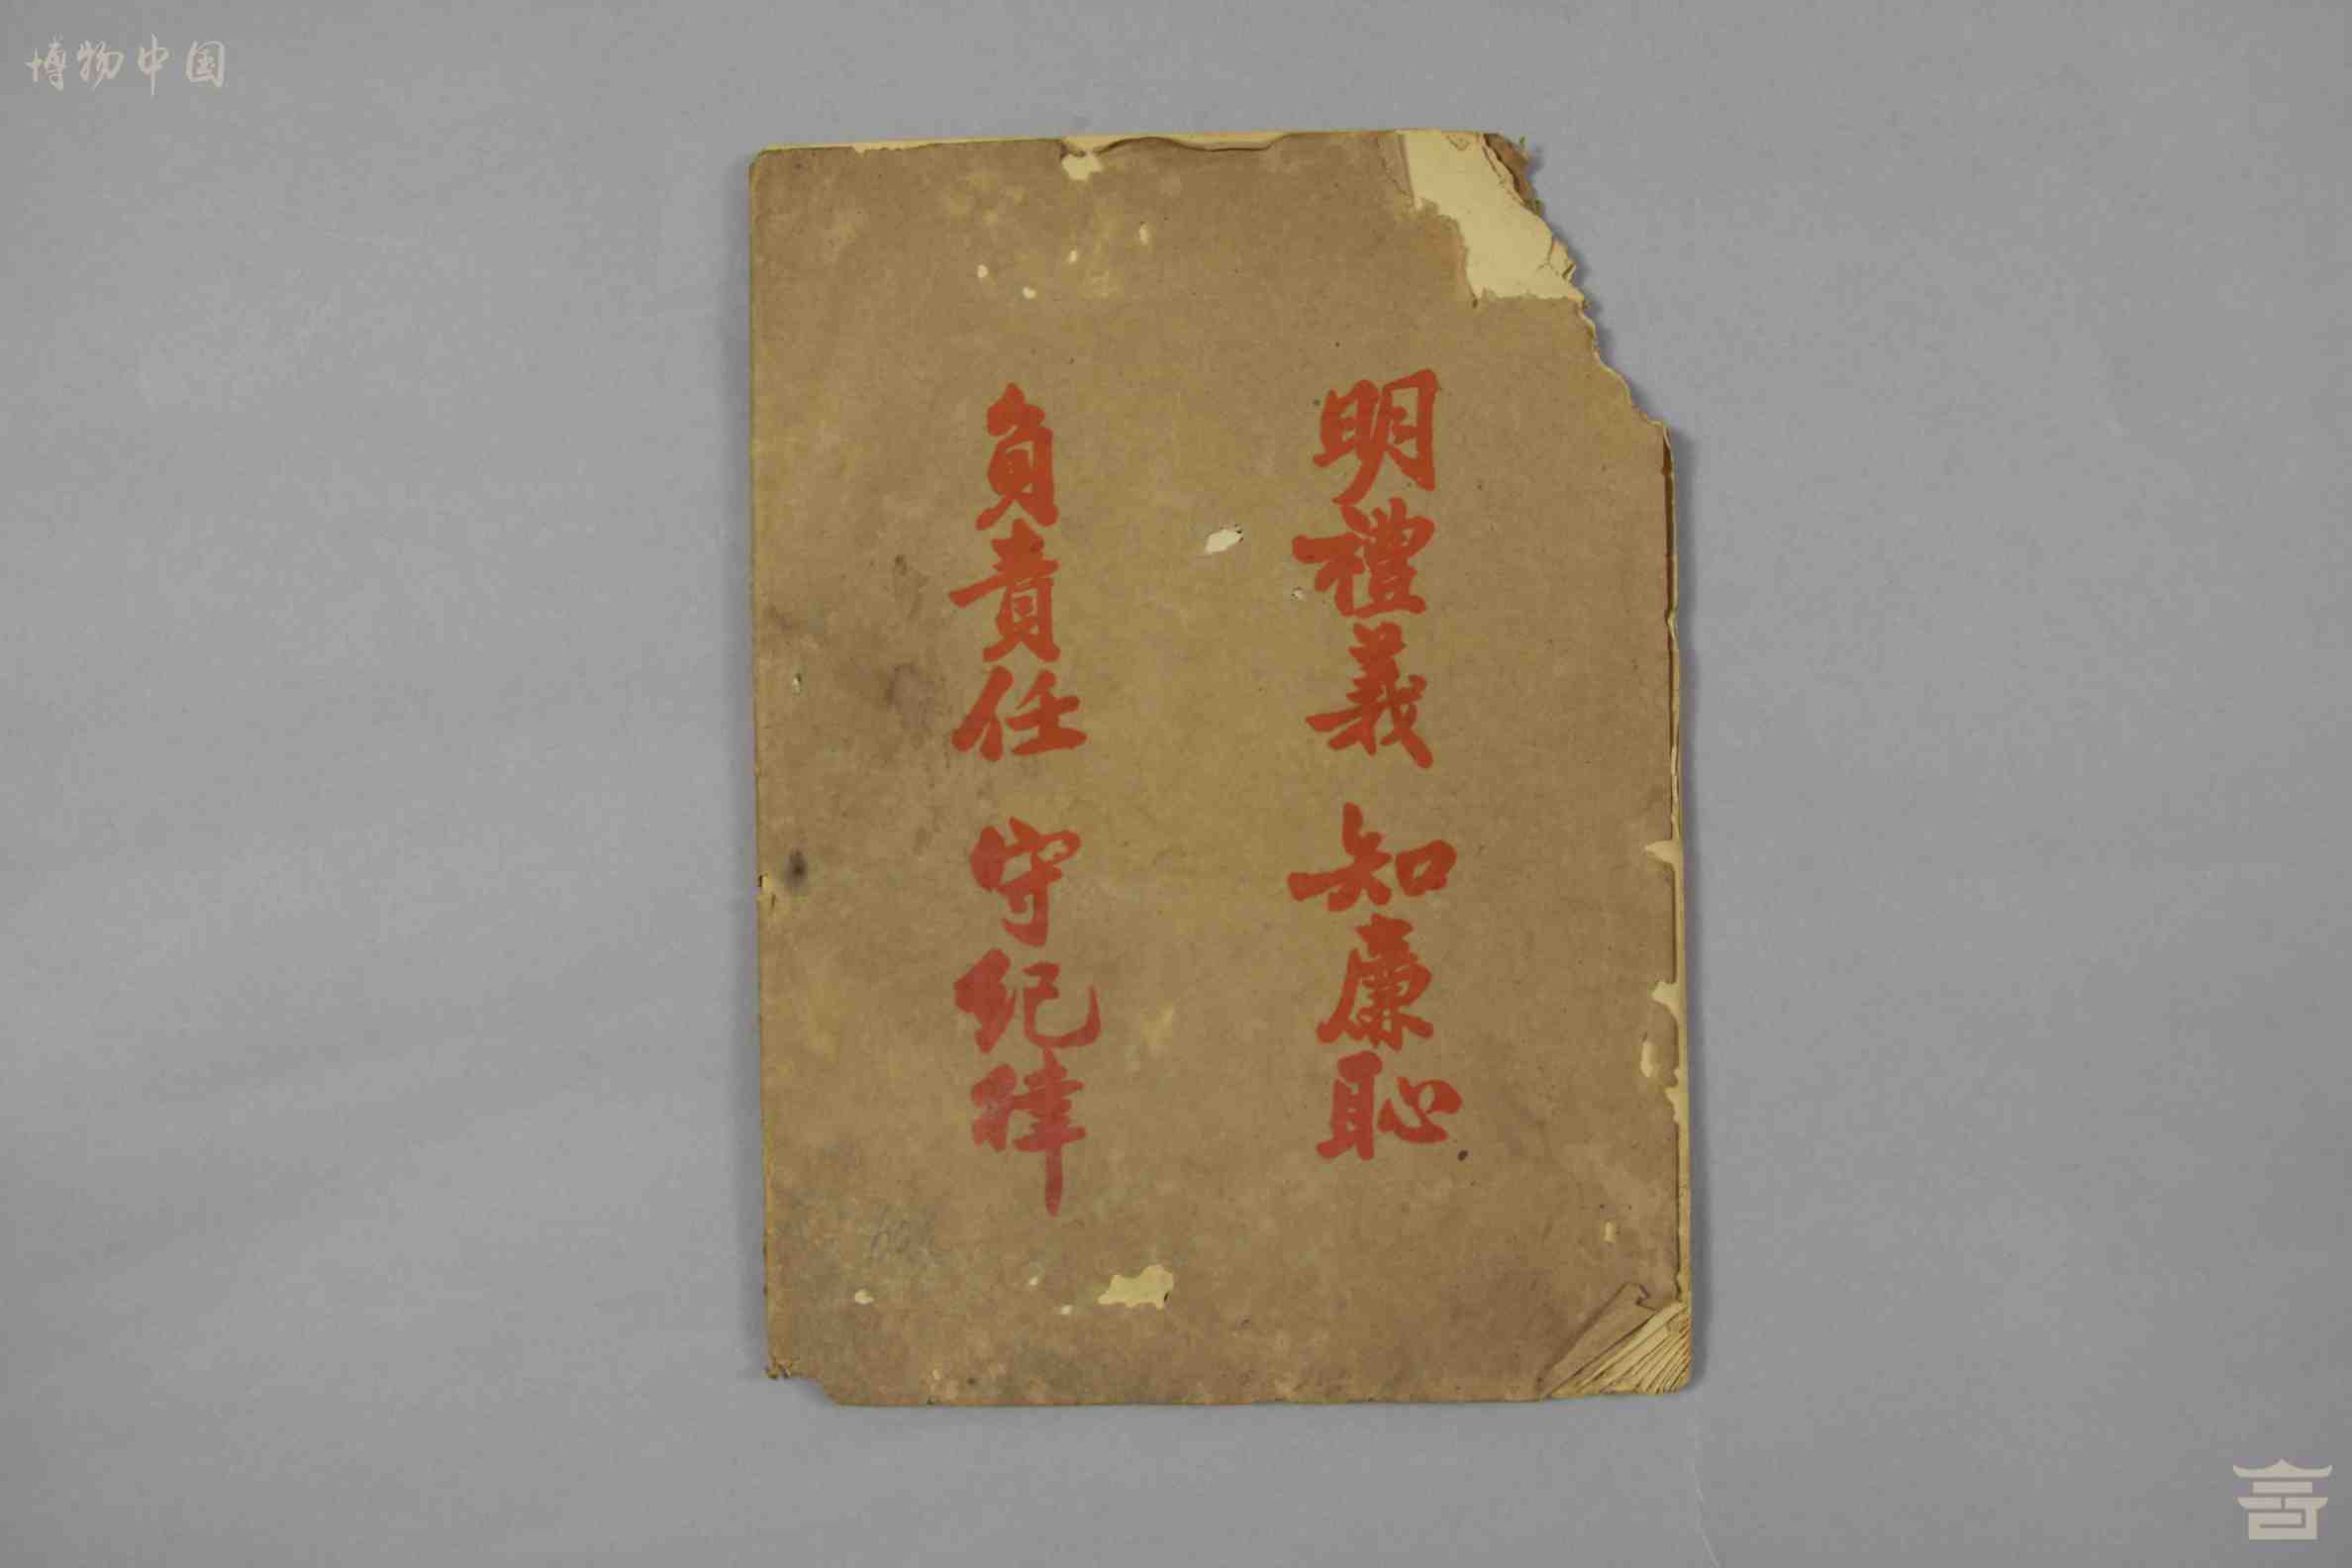 博物中国
明禮義 知廉恥
負責任 守紀律